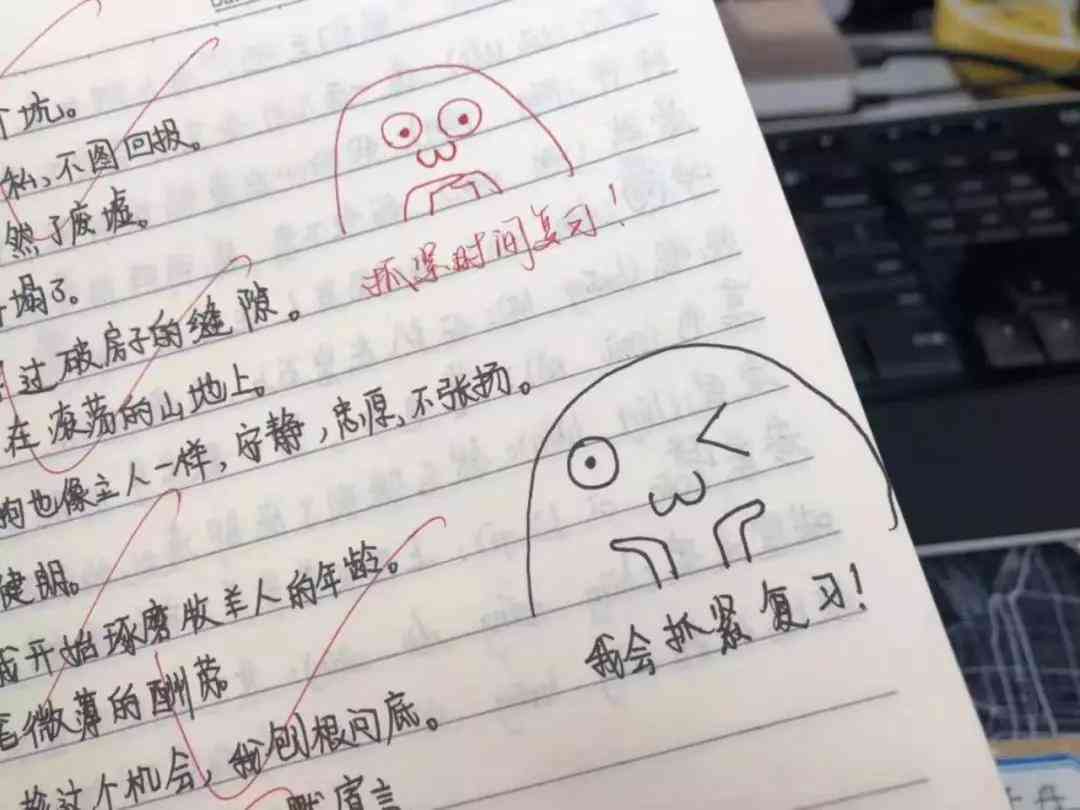 坑。
私,不图回报。
然了废墟。
塌了。
过破房子的缝隙。
在滚荡的山地上。
狗也像主人一样,安静,忠愿,不张扬。
健朗。
我开始琢磨牧羊人的年龄。
笔微薄的酬劳。
趁这个机会,我刨根问底。
默宣言
抓紧时间复习!
我会抓紧复习!